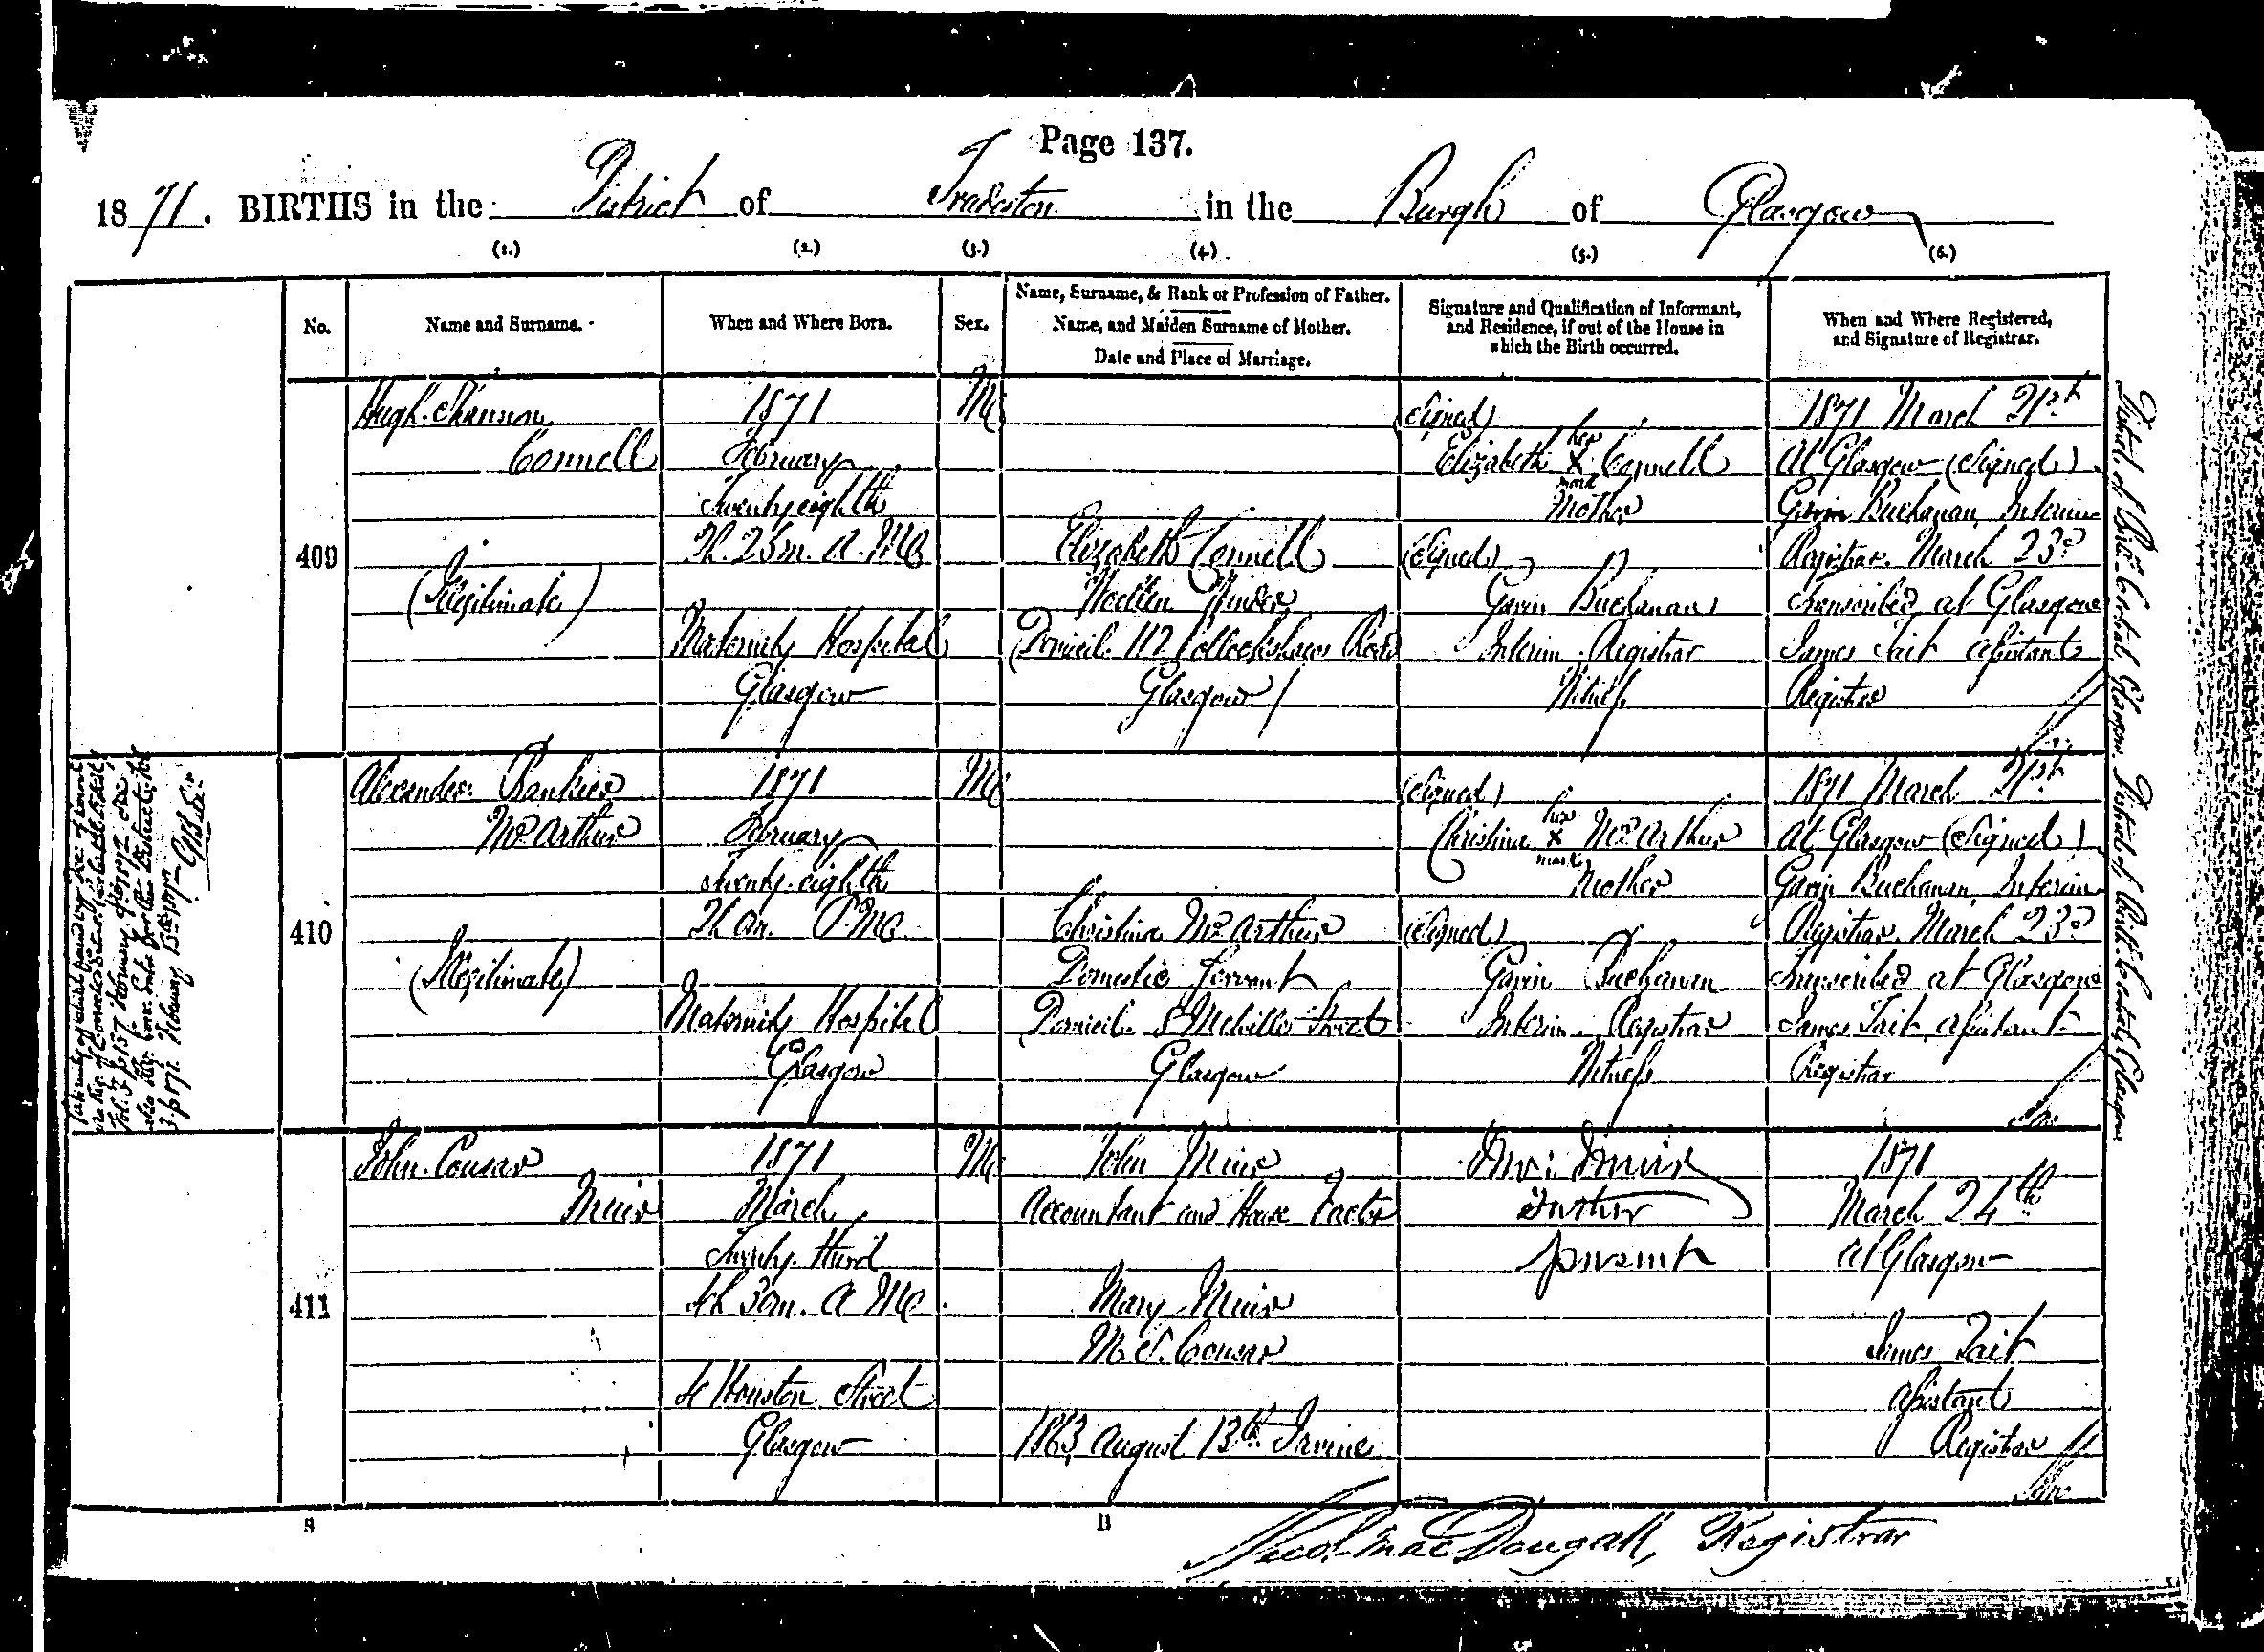 Page 137.
1871. BIRTHS in the District of Tradeston in the Burgh of Glasgow
(1.) (2.) (3.) (4.) (5.) (6.)
No.
Name and Surname.
When and Where Born.
Sex.
Name, Surname, & Rank or Profession of Father.
Name, and Maiden Surname of Mother.
Date and Place of Marriage.
Signature and Qualification of Informant,
and Residence, if out of the House in
which the Birth occurred.
When and Where Registered,
and Signature of Registrar.
409
Hugh Shannon
Connell
(Illegitimate)
1871
February
Twenty eighth
2h. 25m. A.M.
Maternity Hospital
Glasgow
M.
Elizabeth Connell
Woollen Winder
(Domicile 112 Pollockshaws Road
Glasgow)
(Signed)
her
Elizabeth X Connell
mark
Mother
(Signed)
Gavin Buchanan
Interim Registrar
Witness
1871 March 21st
At Glasgow (Signed)
Gavin Buchanan Interim
Registrar. March 23rd
Transcribed at Glasgow
James Tait Assistant
Registrar
410
Alexander Rankin
McArthur
(Illegitimate)
1871
February
Twenty eighth
P.M.
Maternity Hospital
Glasgow
M.
Christina McArthur
Domestic Servant
(Domicile 8 Melville Street
Glasgow
(Signed)
her
Christina X McArthur
mark
Mother
(Signed)
Gavin Buchanan
Interim Registrar
Witness
1871 March 21st
At Glasgow (Signed)
Gavin Buchanan, Interim
Registrar. March 23rd
Transcribed at Glasgow
James Tait, Assistant
Registrar
411
John Cousar
Muir
1871
March
Twenty third
4h 30m. A.M.
4 Houston Street
Glasgow
M.
John Muir
Accountant and House Factor
Mary Muir
M.S. Cousar
1863, August 13th Irvine
Jno: Muir
Father
present
1871
March 24th
At Glasgow
James Tait
Assistant
Registrar
MacDougall, Registrar